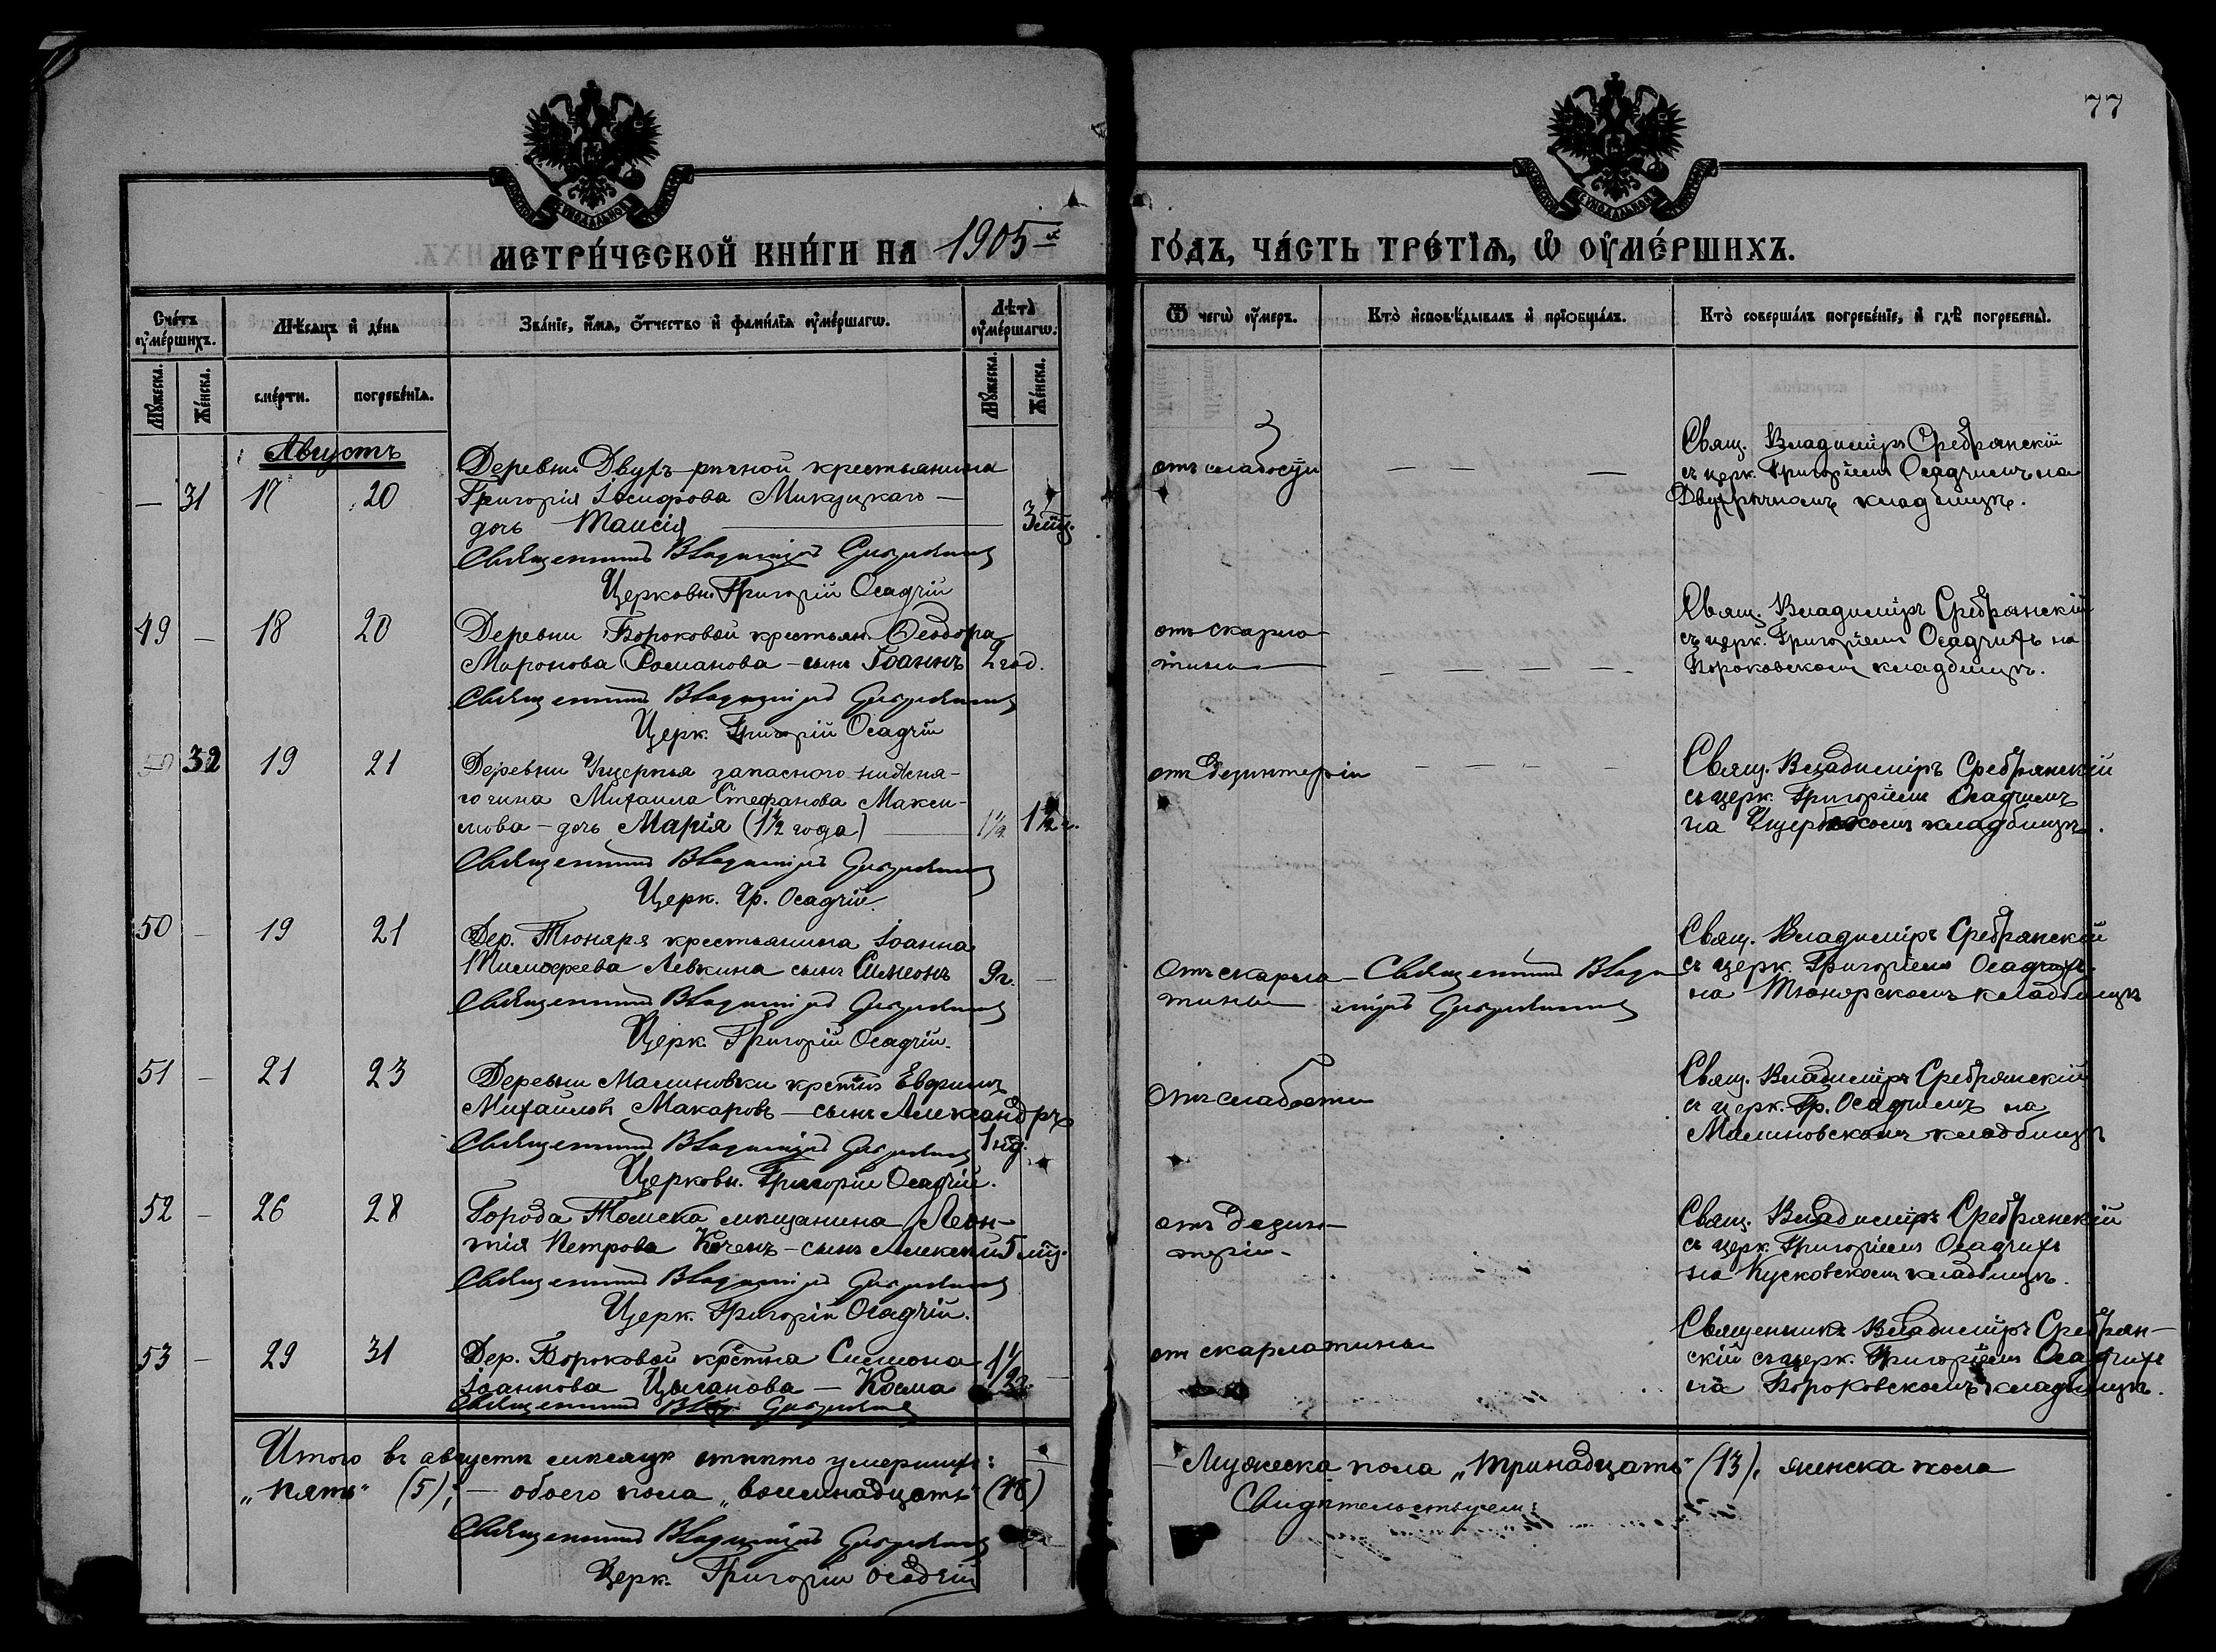 77
МЕТРИ́ЧЕСКОЙ КНИ́ГИ НА 1905-й ГО́ДЪ, ЧА́СТЬ ТРЕ́ТІѦ, Ѿ ОУ҆МЕ́РШИХЪ.
Сче́тъ оу҆ме́ршихъ.
Мꙋ́жеска.
Же́нска.
Мѣ́сѧцъ и҆ де́нь
сме́рти.
погребе́нїѧ.
Зва́нїе, и҆́мѧ, ѻ҆́тчество и҆ фами́лїѧ оу҆ме́ршагѡ.
Лѣ́та оу҆ме́ршагѡ.
Мꙋ́жеска.
Же́нска.
Ѿ чегѡ̀ оу҆́меръ.
Кто̀ и҆сповѣ́дывалъ и҆ прїѡбща́лъ.
Кто̀ соверша́лъ погребе́нїе, и҆ гдѣ̀ погребены̀.
Августъ
— 31 17 20
Деревни Двухъ-рѣчной крестьянина
Григорія Іосифова Микуцкаго —
дочь Таисія — 3 мѣц.
Священникъ Владиміръ Сребрянскій
Церковн. Григорій Осадчій
отъ слабости
— — —
Свящ. Владиміръ Сребрянскій
съ церк. Григоріемъ Осадчимъ на
Двухрѣчномъ кладбищѣ.
49 — 18 20
Деревни Вороковой крестьян. Ѳеодора
Миронова Романова — сынъ Іоаннъ 2 год.
Священникъ Владиміръ Сребрянскій
Церк. Григорій Осадчій
отъ скарла-
тины
— — — —
Свящ. Владиміръ Сребрянскій
съ церк. Григоріемъ Осадчихъ на
Вороковскомъ кладбищѣ.
50 32 19 21
Деревни Ущерпья запасного нижня-
го чина Михаила Стефанова Макси-
мова — дочь Марія (1½ года) — 1½ 1½ г.
Священникъ Владиміръ Сребрянскій
Церк. Гр. Осадчій.
отъ дезинтеріи
— — — —
Свящ. Владиміръ Сребрянскій
съ церк. Григоріемъ Осадчимъ
на кладбищѣ.
50 — 19 21
Дер. Тюняря крестьянина Іоанна
Тимофеева Левкина сынъ Симеонъ 9 г. —
Священникъ Владиміръ Сребрянскій
Церк. Григорій Осадчій.
Отъ скарла-
тины
Священникъ Влади-
міръ Сребрянскій
Свящ. Владиміръ Сребрянскій
съ церк. Григоріемъ Осадчихъ
на Тюнярскомъ кладбищѣ
51 — 21 23
Деревни Малиновки крест-нъ Евфимъ
Михайловъ Макаровъ — сынъ Александръ
1 нед.
Священникъ Владиміръ Сребрянскій
Церковн. Григорій Осадчій.
Отъ слабости
Свящ. Владиміръ Сребрянскій
съ церк. Гр. Осадчимъ на
Малиновскомъ кладбищѣ
52 — 26 28
Города Томска мѣщанина Леон-
тія Петрова — сынъ Алексѣй 5 мѣц.
Священникъ Владиміръ Сребрянскій
Церк. Григорій Осадчій.
отъ дезин-
теріи
Свящ. Владиміръ Сребрянскій
съ церк. Григоріемъ Осадчихъ
на Кусковскомъ кладбищѣ.
53 — 29 31
Дер. Вороковой крест-на Симеона
Іоаннова Цыганова — Косма 1½ г. —
Священникъ Влад. Сребрянскій
отъ скарлатины
Священникъ Владиміръ Сребрян-
скій съ церк. Григоріемъ Осадчихъ
на Вороковскомъ кладбищѣ.
Итого въ августѣ мѣсяцѣ умершихъ: — Мужеска пола „тринадцать“ (13), женска пола
„пять“ (5); — обоего пола „восемнадцать“ (18) Свидѣтельствуемъ:
Священникъ Владиміръ Сребрянскій
Церк. Григорій Осадчій